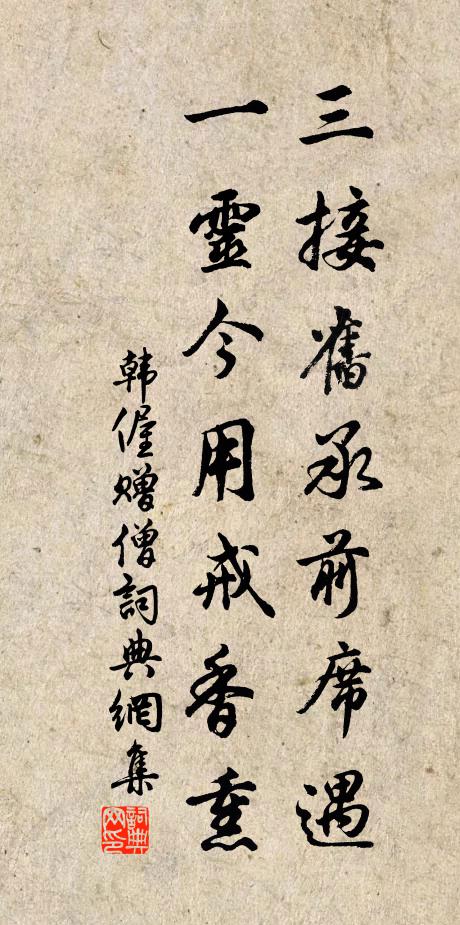 三接舊承前席遇
一靈今用戒香熏
韩偓赠僧詞典網集
詞典网印